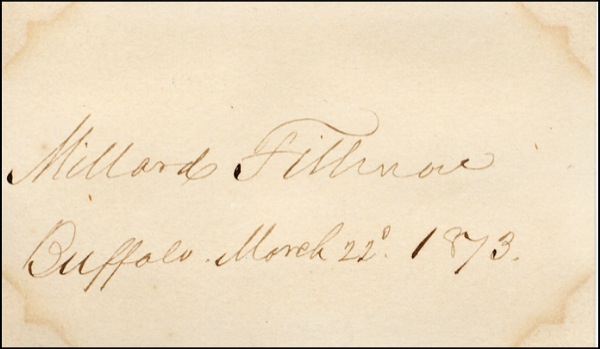 Millard Fillmore
Buffalo. March 22d. 1873.